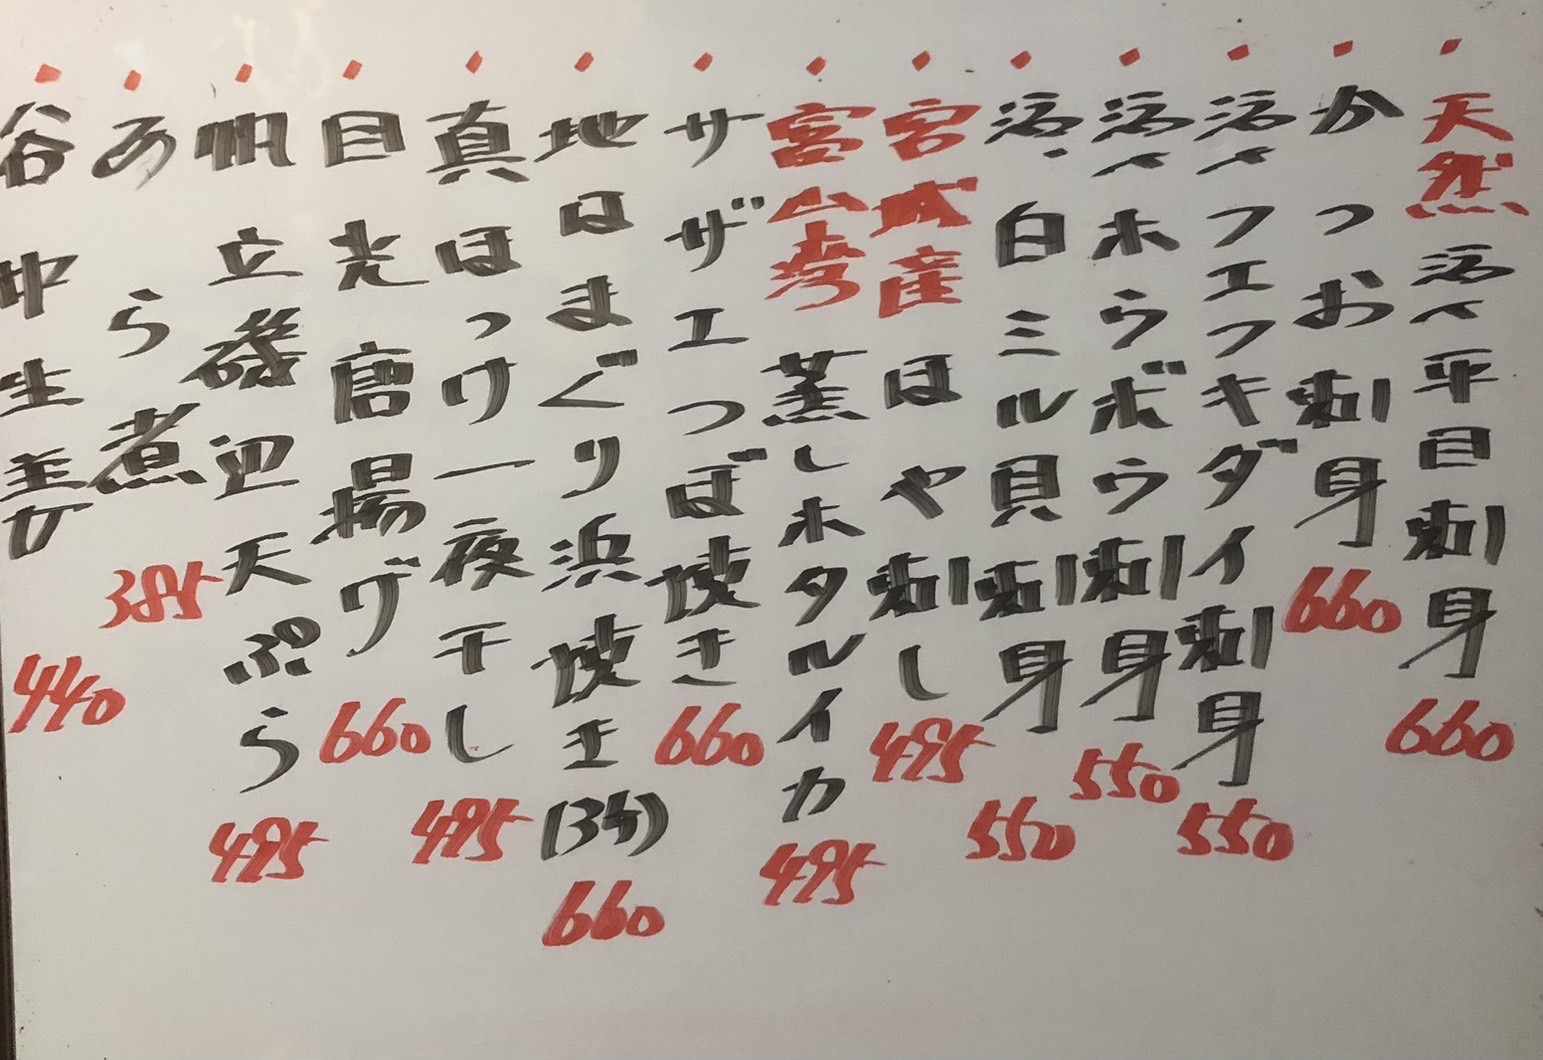 天然活〆平目刺身 660
かつお刺身 660
活〆フエフキダイ刺身 550
活〆ホウボウ刺身 550
活・白ミル貝刺身 550
宮城産ほや刺し 495
富山産蒸しホタルイカ 495
サザエつぼ焼き 660
地はまぐり浜焼き(3ヶ) 660
真ほっけ一夜干し 495
目光唐揚げ 660
帆立磯辺天ぷら 495
あら煮 385
谷中生姜 440